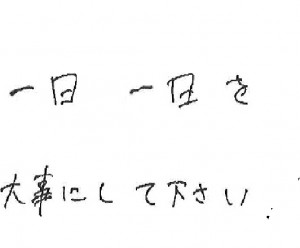 一日 一日を
大事にして下さい.